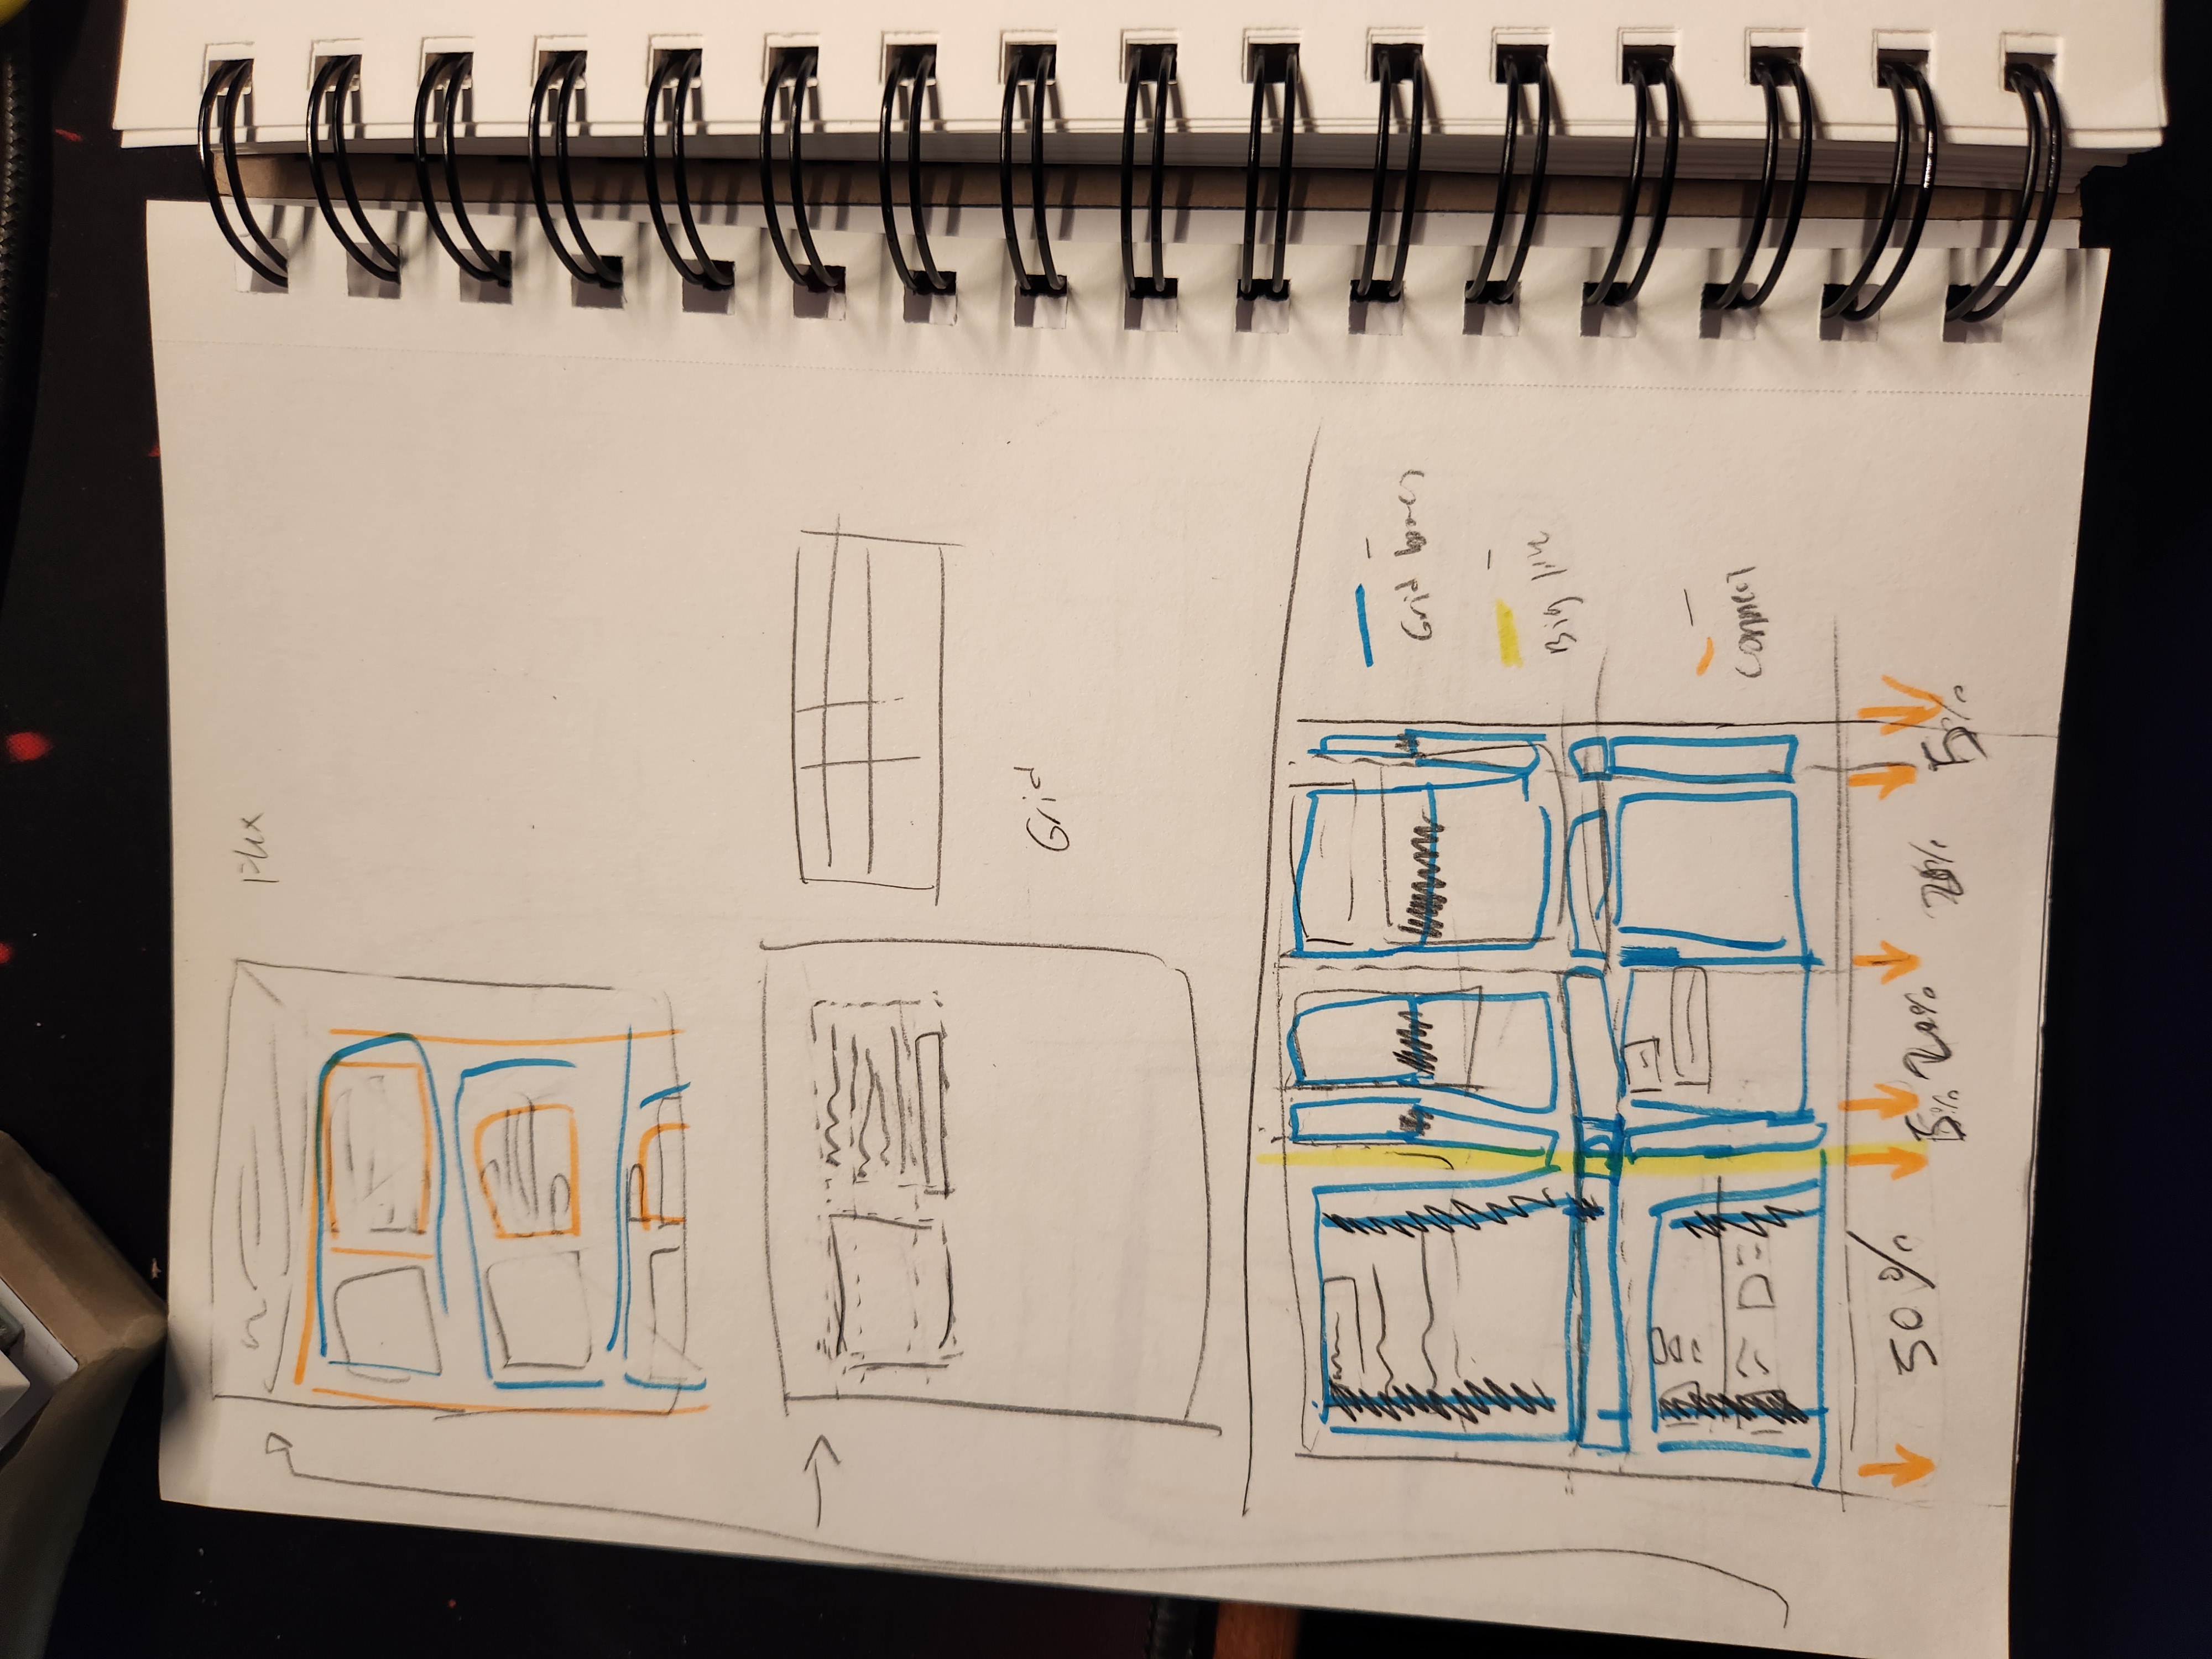 Flex
Grid
Grid boxes
Big line
Connect
50% 5% 20% 20% 5%